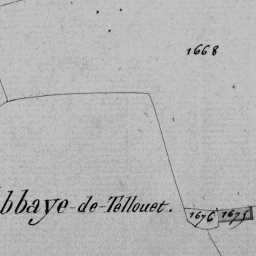 1668
bbaye-de-Tellouet.
1676 1675